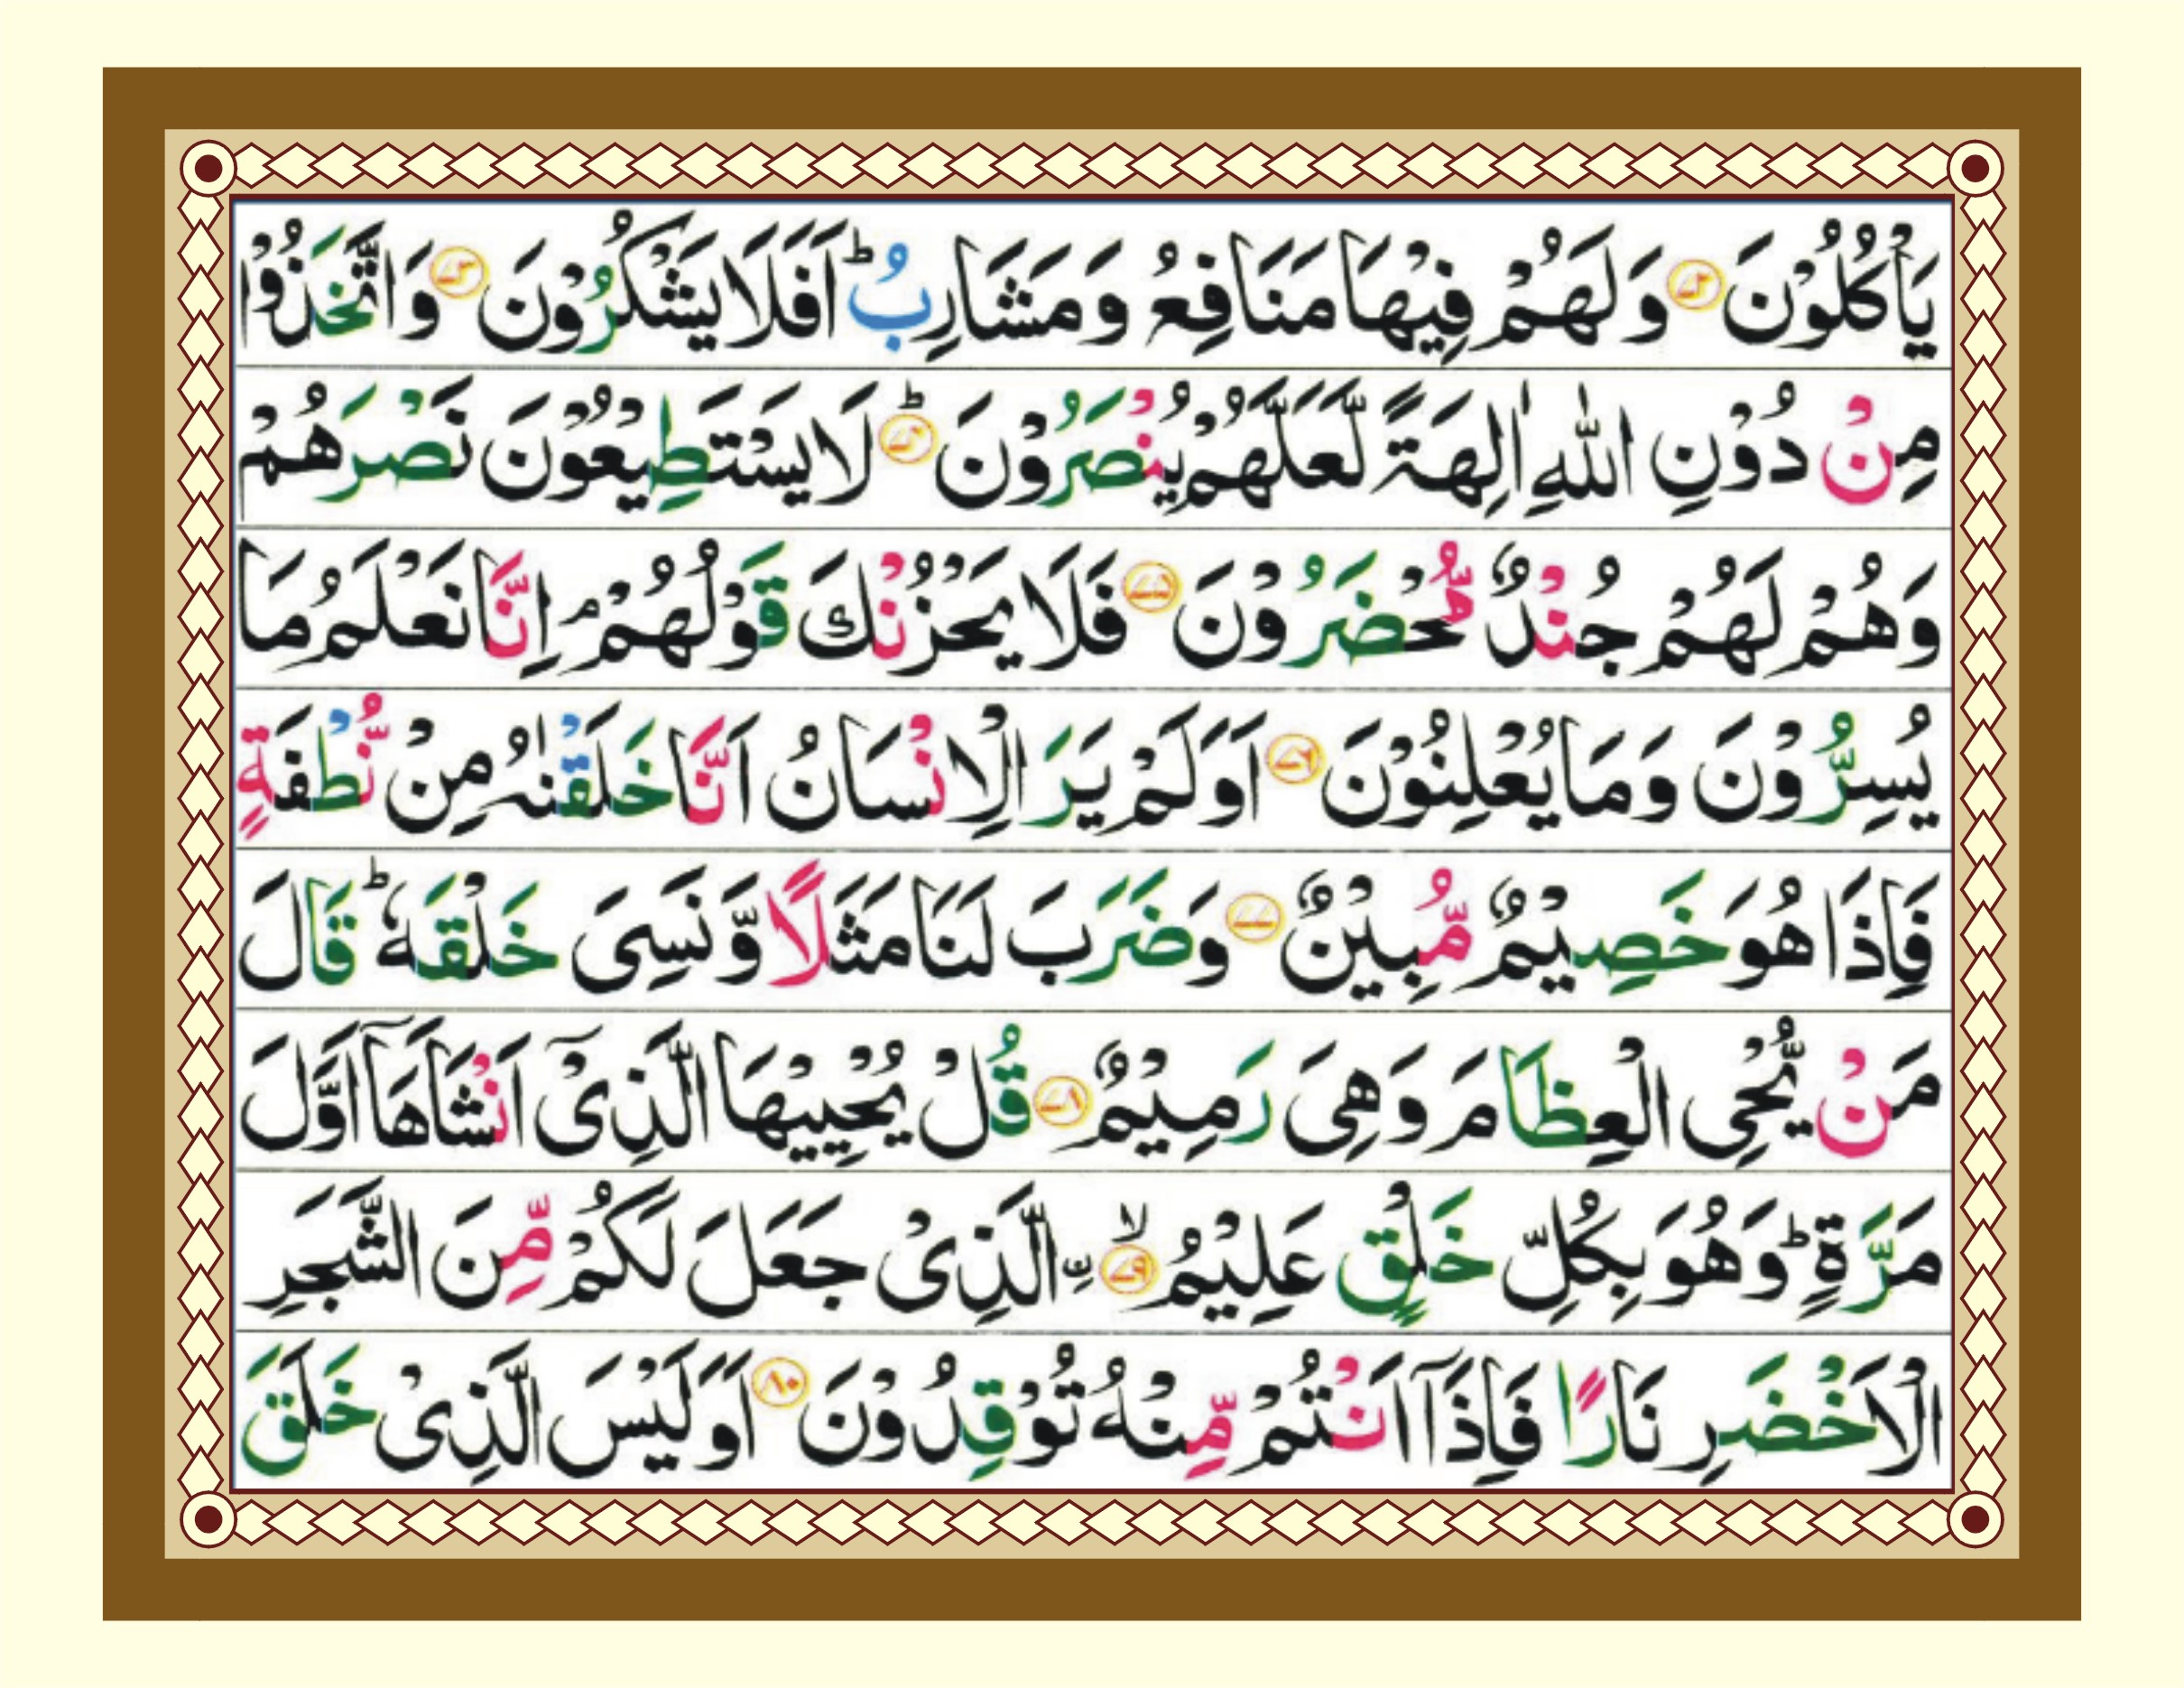 يَاْكُلُوْنَ ۝۷۲ وَلَهُمْ فِيْهَا مَنَافِعُ وَمَشَارِبُ ؕ اَفَلَا يَشْكُرُوْنَ ۝۷۳ وَاتَّخَذُوْا
مِنْ دُوْنِ اللّٰهِ اٰلِهَةً لَّعَلَّهُمْ يُنْصَرُوْنَ ۝۷۴ ؕ لَا يَسْتَطِيْعُوْنَ نَصْرَهُمْ
وَهُمْ لَهُمْ جُنْدٌ مُّحْضَرُوْنَ ۝۷۵ فَلَا يَحْزُنْكَ قَوْلُهُمْ ۘ اِنَّا نَعْلَمُ مَا
يُسِرُّوْنَ وَمَا يُعْلِنُوْنَ ۝۷۶ اَوَلَمْ يَرَ الْاِنْسَانُ اَنَّا خَلَقْنٰهُ مِنْ نُّطْفَةٍ
فَاِذَا هُوَ خَصِيْمٌ مُّبِيْنٌ ۝۷۷ وَضَرَبَ لَنَا مَثَلًا وَّنَسِىَ خَلْقَهٗ ؕ قَالَ
مَنْ يُّحْىِ الْعِظَامَ وَهِىَ رَمِيْمٌ ۝۷۸ قُلْ يُحْيِيْهَا الَّذِىْۤ اَنْشَاَهَاۤ اَوَّلَ
مَرَّةٍ ؕ وَهُوَ بِكُلِّ خَلْقٍ عَلِيْمُ ۝۷۹ ۙ ۨالَّذِىْ جَعَلَ لَكُمْ مِّنَ الشَّجَرِ
الْاَخْضَرِ نَارًا فَاِذَاۤ اَنْتُمْ مِّنْهُ تُوْقِدُوْنَ ۝۸۰ اَوَلَيْسَ الَّذِىْ خَلَقَ